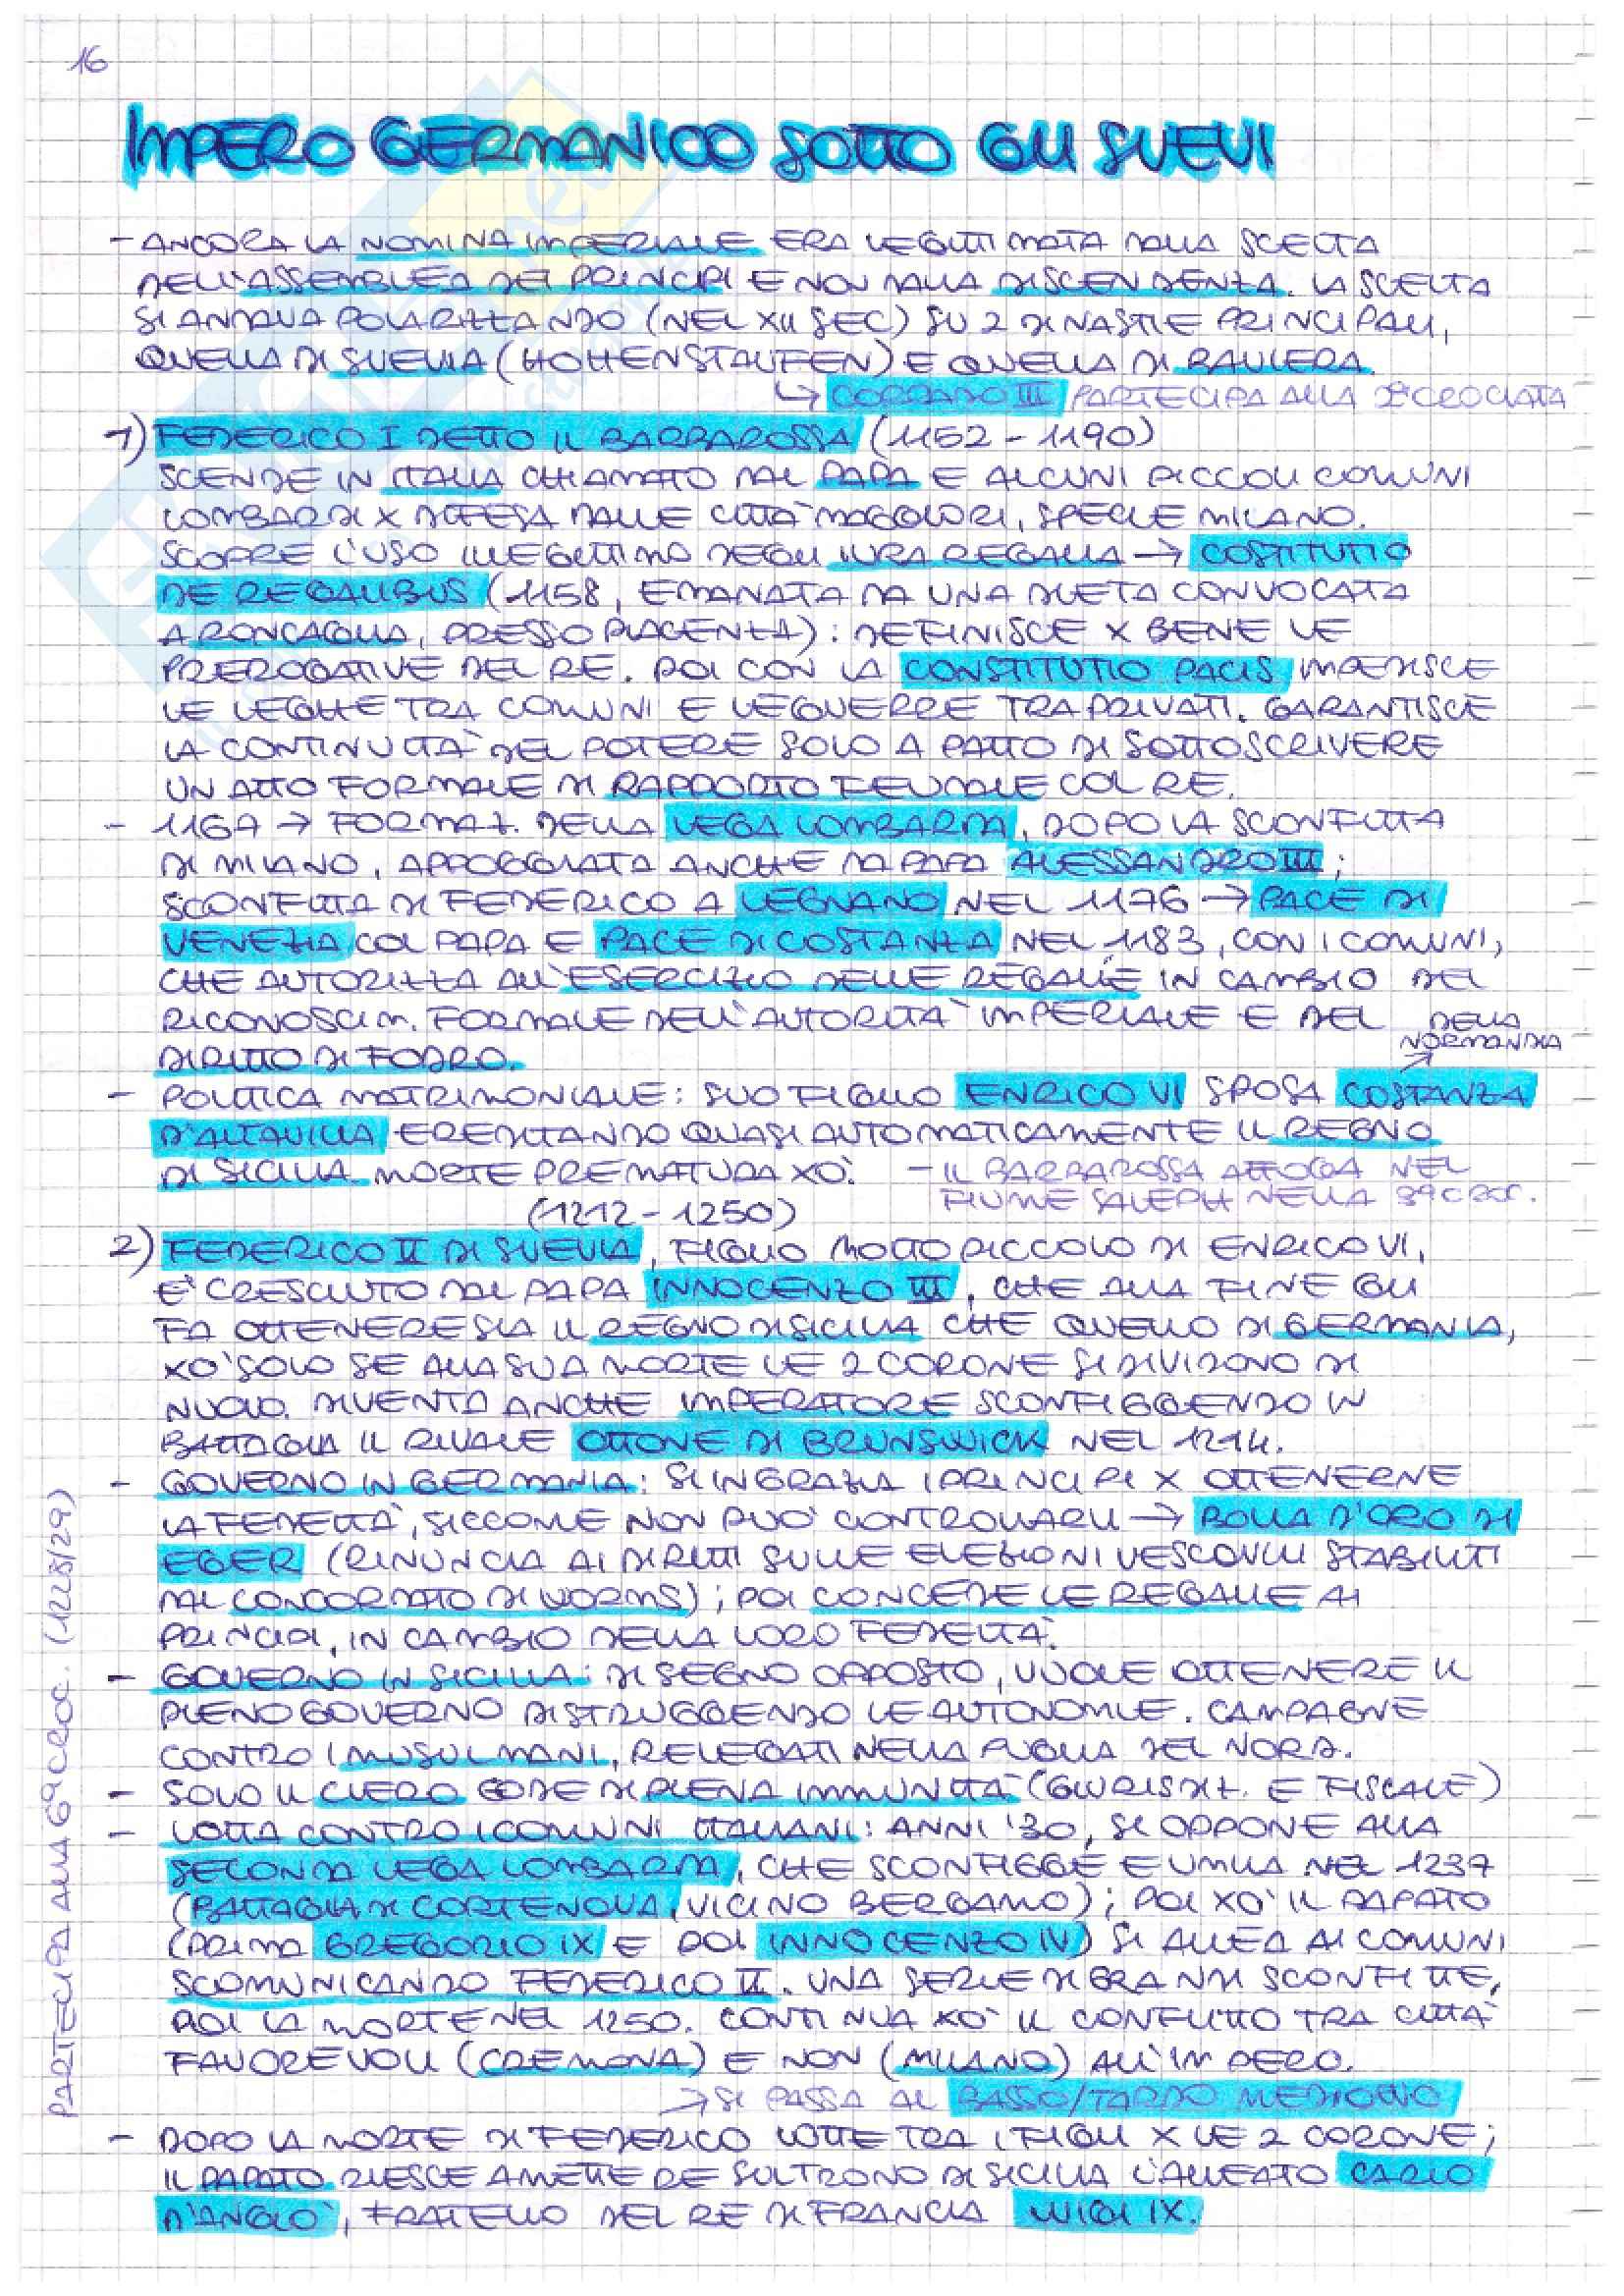 16
IMPERO GERMANICO SOTTO GLI SVEVI
- ANCORA LA NOMINA IMPERIALE ERA LEGITTIMATA DALLA SCELTA
DELL'ASSEMBLEA DEI PRINCIPI E NON DALLA DISCENDENZA. LA SCELTA
SI ANDAVA POLARIZZANDO (NEL XII SEC) SU 2 DINASTIE PRINCIPALI,
QUELLA DI SVEVIA (HOHENSTAUFEN) E QUELLA DI BAVIERA.
↳ CORRADO III PARTECIPA ALLA 2ª CROCIATA
1) FEDERICO I DETTO IL BARBAROSSA (1152-1190)
SCENDE IN ITALIA CHIAMATO DAL PAPA E ALCUNI PICCOLI COMUNI
LOMBARDI X DIFESA DALLE CITTÀ MAGGIORI, SPECIE MILANO.
SCOPRE L'USO ILLEGITTIMO DEGLI IURA REGALIA → COSTITUTIO
DE REGALIBUS (1158, EMANATA DA UNA DIETA CONVOCATA
A RONCAGLIA, PRESSO PIACENZA): DEFINISCE X BENE LE
PREROGATIVE DEL RE. POI CON LA CONSTITUTIO PACIS IMPEDISCE
LE LEGHE TRA COMUNI E LE GUERRE TRA PRIVATI. GARANTISCE
LA CONTINUITÀ DEL POTERE SOLO A PATTO DI SOTTOSCRIVERE
UN ATTO FORMALE DI RAPPORTO FEUDALE COL RE.
- 1167 → FORMAZ. DELLA LEGA LOMBARDA, DOPO LA SCONFITTA
DI MILANO, APPOGGIATA ANCHE DA PAPA ALESSANDRO III;
SCONFITTA DI FEDERICO A LEGNANO NEL 1176 → PACE DI
VENEZIA COL PAPA E PACE DI COSTANZA NEL 1183, CON I COMUNI,
CHE AUTORIZZA ALL'ESERCIZIO DELLE REGALIE IN CAMBIO DEL
RICONOSCIM. FORMALE DELL'AUTORITÀ IMPERIALE E DEL
DIRITTO DI FODRO.
DELLA NORMANDIA
- POLITICA MATRIMONIALE: SUO FIGLIO ENRICO VI SPOSA COSTANZA
D'ALTAVILLA EREDITANDO QUASI AUTOMATICAMENTE IL REGNO
DI SICILIA. MORTE PREMATURA XÒ.
- IL BARBAROSSA AFFOGA NEL
FIUME SALEPH NELLA 3ª CROC.
(1212-1250)
2) FEDERICO II DI SVEVIA, FIGLIO MOLTO PICCOLO DI ENRICO VI,
E' CRESCIUTO DAL PAPA INNOCENZO III, CHE ALLA FINE GLI
FA OTTENERE SIA IL REGNO DI SICILIA CHE QUELLO DI GERMANIA,
XO' SOLO SE ALLA SUA MORTE LE 2 CORONE SI DIVIDONO DI
NUOVO. DIVENTA ANCHE IMPERATORE SCONFIGGENDO IN
BATTAGLIA IL RIVALE OTTONE DI BRUNSWICK NEL 1214.
- GOVERNO IN GERMANIA: SI INGRAZIA I PRINCIPI X OTTENERNE
LA FEDELTÀ, SICCOME NON PUO' CONTROLLARLI → BOLLA D'ORO DI
EGER (RINUNCIA AI DIRITTI SULLE ELEZIONI VESCOVILI STABILITI
DAL CONCORDATO DI WORMS); POI CONCEDE LE REGALIE AI
PRINCIPI, IN CAMBIO DELLA LORO FEDELTÀ.
- GOVERNO IN SICILIA: DI SEGNO OPPOSTO, VUOLE OTTENERE IL
PIENO GOVERNO DISTRUGGENDO LE AUTONOMIE. CAMPAGNE
CONTRO I MUSULMANI, RELEGATI NELLA PUGLIA DEL NORD.
- SOLO IL CLERO GODE DI PIENA IMMUNITÀ (GIURISDIZ. E FISCALE)
- LOTTA CONTRO I COMUNI ITALIANI: ANNI '30, SI OPPONE ALLA
SECONDA LEGA LOMBARDA, CHE SCONFIGGE E UMILIA NEL 1237
(BATTAGLIA DI CORTENOVA, VICINO BERGAMO); POI XO' IL PAPATO
(PRIMA GREGORIO IX E POI INNOCENZO IV) SI ALLEA AI COMUNI
SCOMUNICANDO FEDERICO II. UNA SERIE DI GRANDI SCONFITTE,
POI LA MORTE NEL 1250. CONTINUA XO' IL CONFLITTO TRA CITTÀ
FAVOREVOLI (CREMONA) E NON (MILANO) ALL'IMPERO.
→ SI PASSA AL BASSO/TARDO MEDIOEVO
- DOPO LA MORTE DI FEDERICO LOTTE TRA I FIGLI X LE 2 CORONE;
IL PAPATO RIESCE A METTERE SUL TRONO DI SICILIA L'ALLEATO CARLO
D'ANGIO', FRATELLO DEL RE DI FRANCIA LUIGI IX.
PARTECIPA ALLA 6ª CROC. (1228/29)